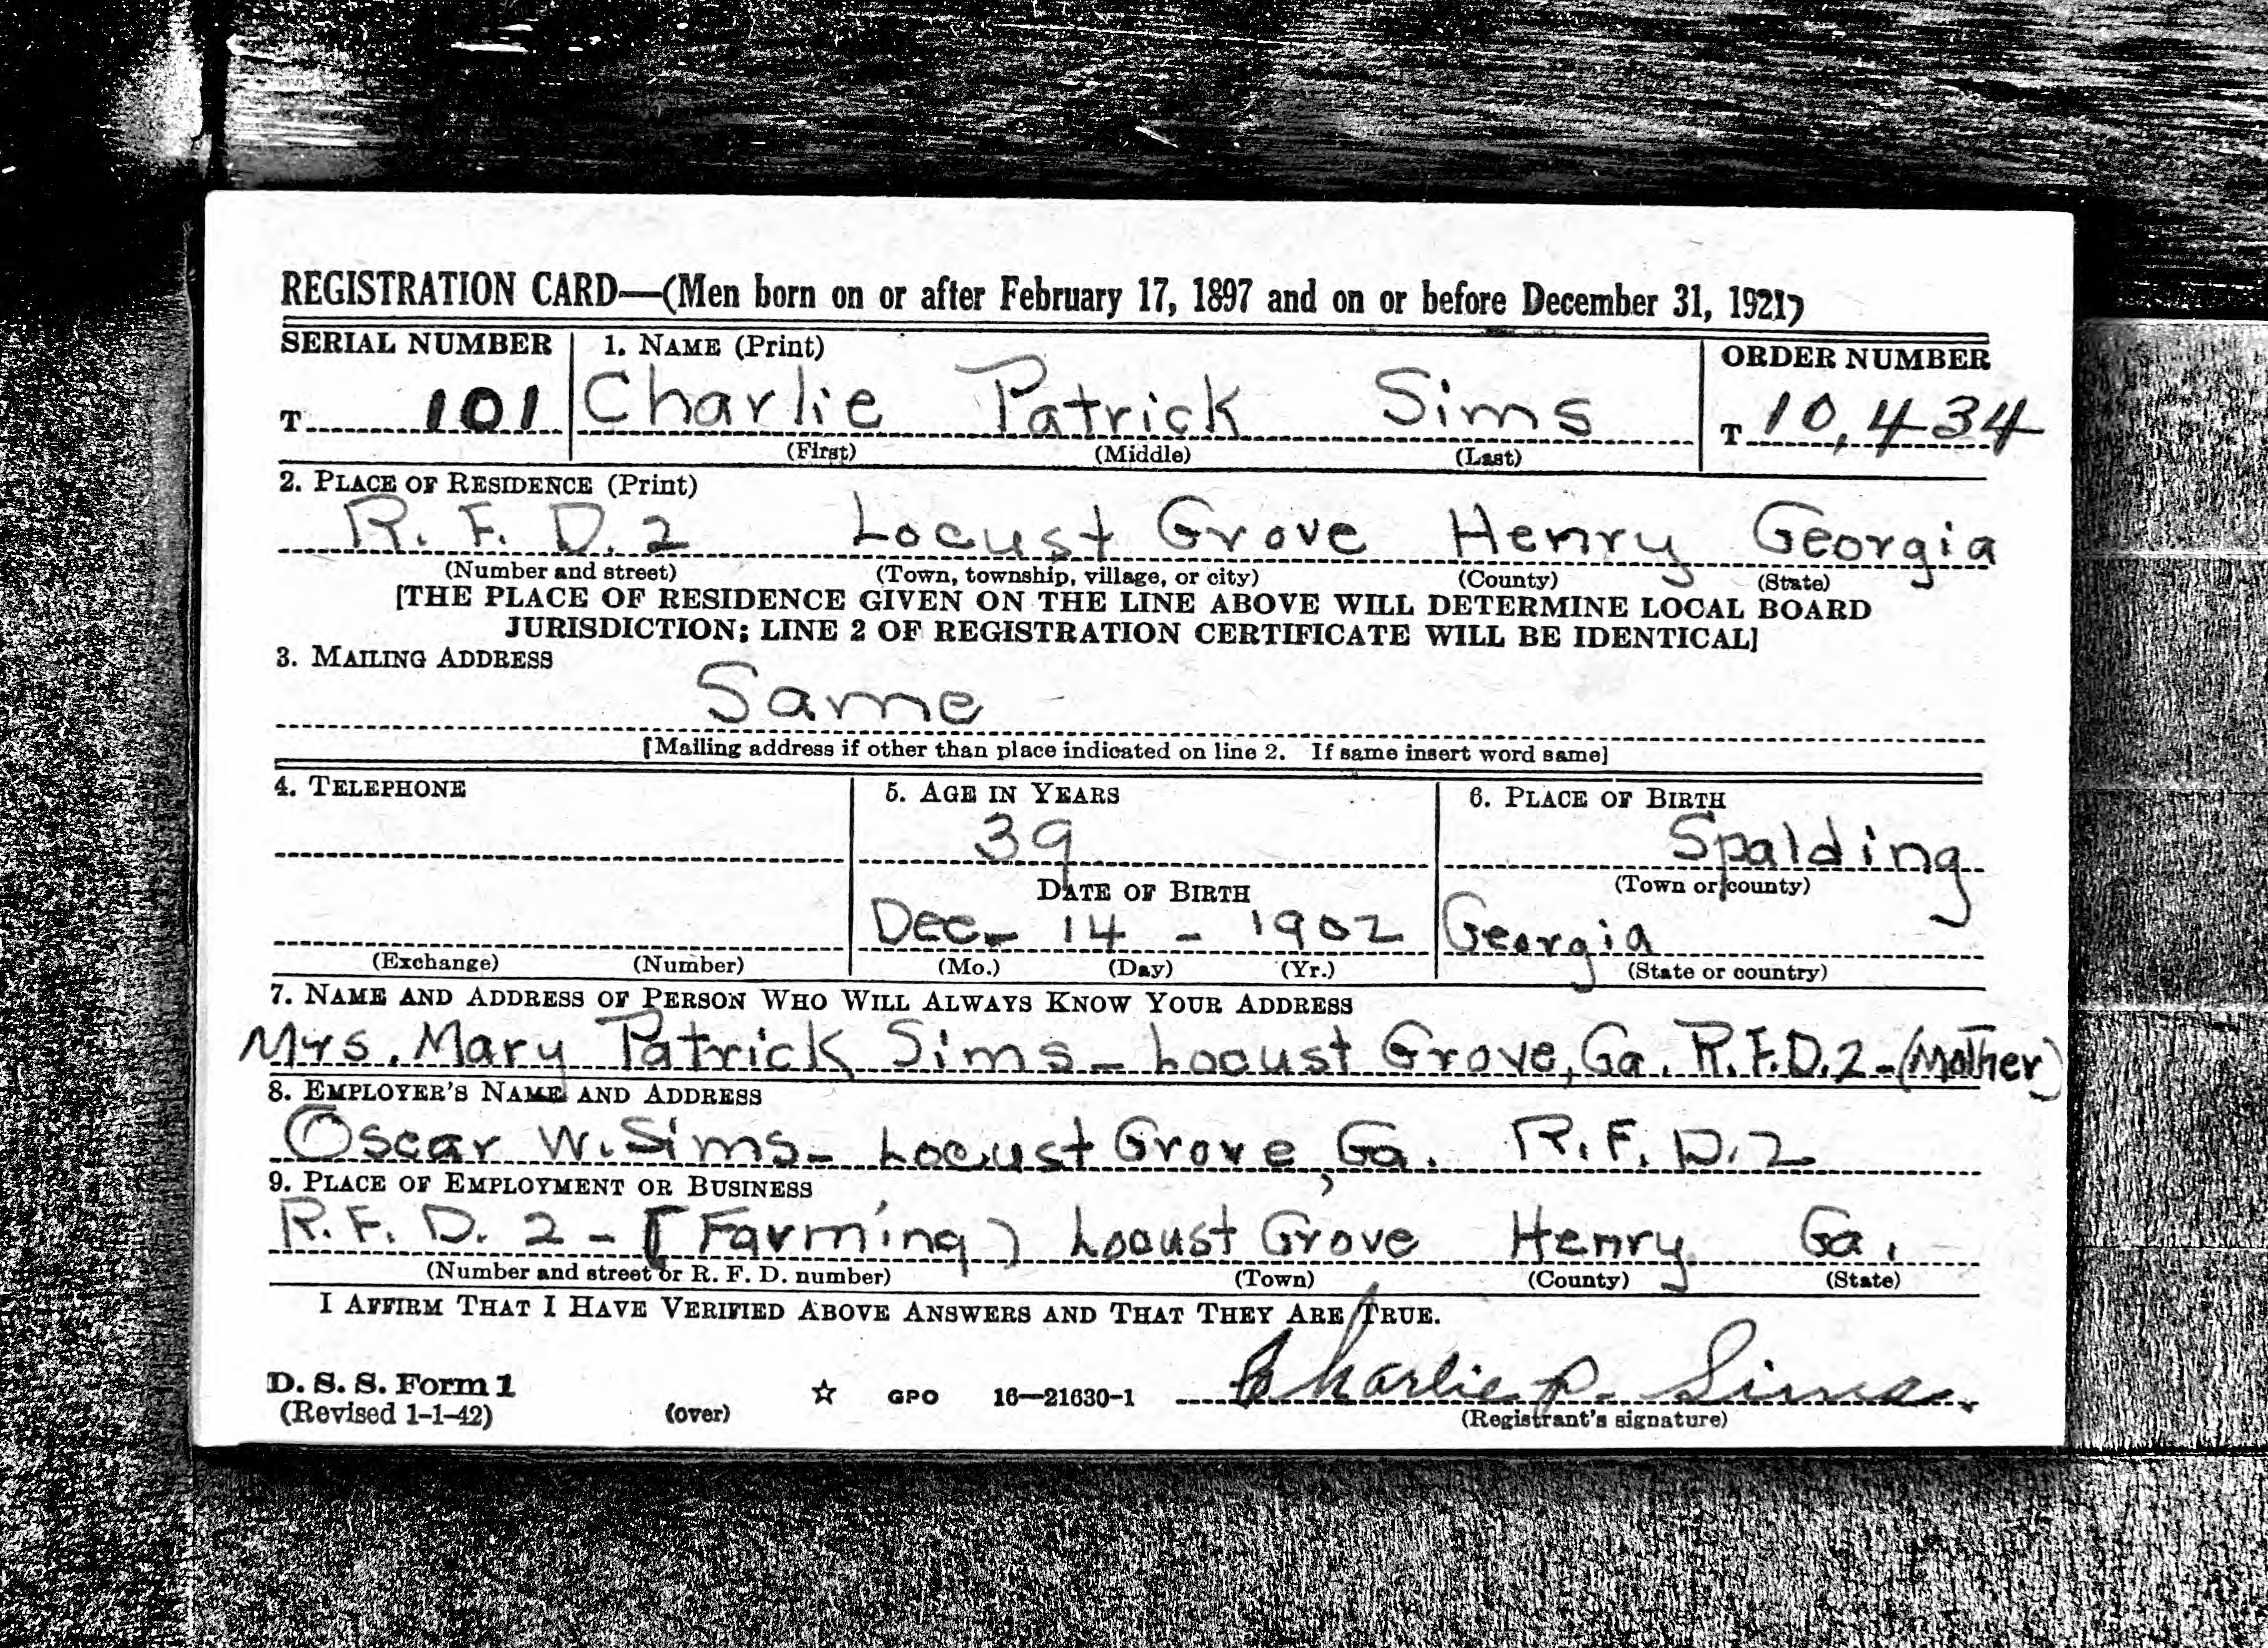 REGISTRATION CARD—(Men born on or after February 17, 1897 and on or before December 31, 1921)
SERIAL NUMBER 1. NAME (Print) ORDER NUMBER
T 101 Charlie Patrick Sims T 10,434
(First) (Middle) (Last)
2. PLACE OF RESIDENCE (Print)
R. F. D. 2 Locust Grove Henry Georgia
(Number and street) (Town, township, village, or city) (County) (State)
[THE PLACE OF RESIDENCE GIVEN ON THE LINE ABOVE WILL DETERMINE LOCAL BOARD
JURISDICTION; LINE 2 OF REGISTRATION CERTIFICATE WILL BE IDENTICAL]
3. MAILING ADDRESS
Same
[Mailing address if other than place indicated on line 2. If same insert word same]
4. TELEPHONE 5. AGE IN YEARS 6. PLACE OF BIRTH
39 Spalding
DATE OF BIRTH (Town or county)
Dec - 14 - 1902 Georgia
(Exchange) (Number) (Mo.) (Day) (Yr.) (State or country)
7. NAME AND ADDRESS OF PERSON WHO WILL ALWAYS KNOW YOUR ADDRESS
Mrs. Mary Patrick Sims - Locust Grove, Ga. R.F.D.2 - (Mother)
8. EMPLOYER'S NAME AND ADDRESS
Oscar W. Sims - Locust Grove, Ga. R.F.D.2
9. PLACE OF EMPLOYMENT OR BUSINESS
R. F. D. 2 - [Farming) Locust Grove Henry Ga.
(Number and street or R. F. D. number) (Town) (County) (State)
I AFFIRM THAT I HAVE VERIFIED ABOVE ANSWERS AND THAT THEY ARE TRUE.
Charlie P. Sims.
D. S. S. Form 1
(Revised 1-1-42) (over) ☆ GPO 16—21630-1 (Registrant's signature)